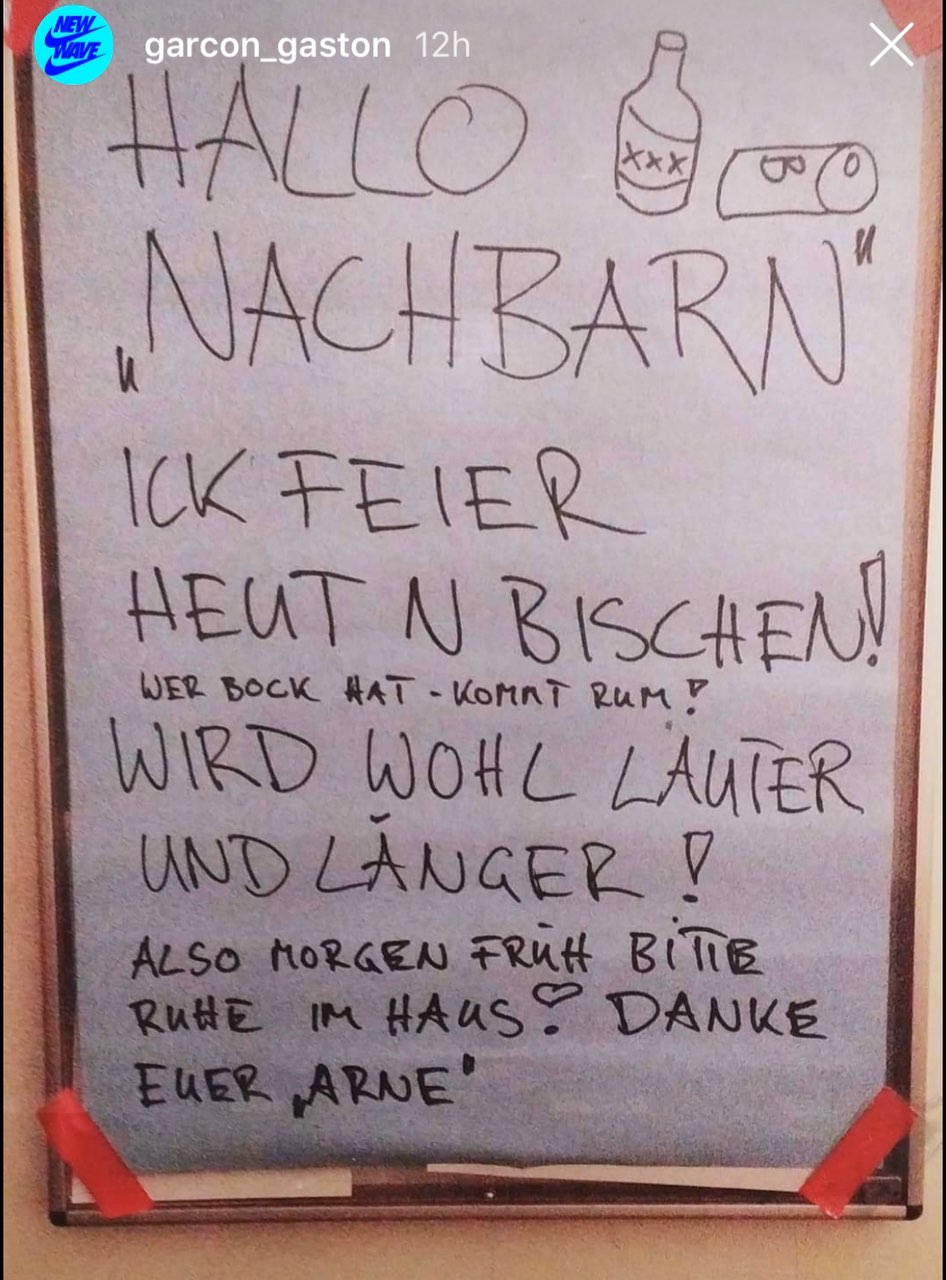 NEW
WAVE
garcon_gaston 12h
HALLO
XXX
„NACHBARN"
ICK FEIER
HEUT N BISCHEN!
WER BOCK HAT - KOMMT RUM!
WIRD WOHL LAUTER
UND LÄNGER!
ALSO MORGEN FRÜH BITTE
RUHE IM HAUS! DANKE
EUER „ARNE"